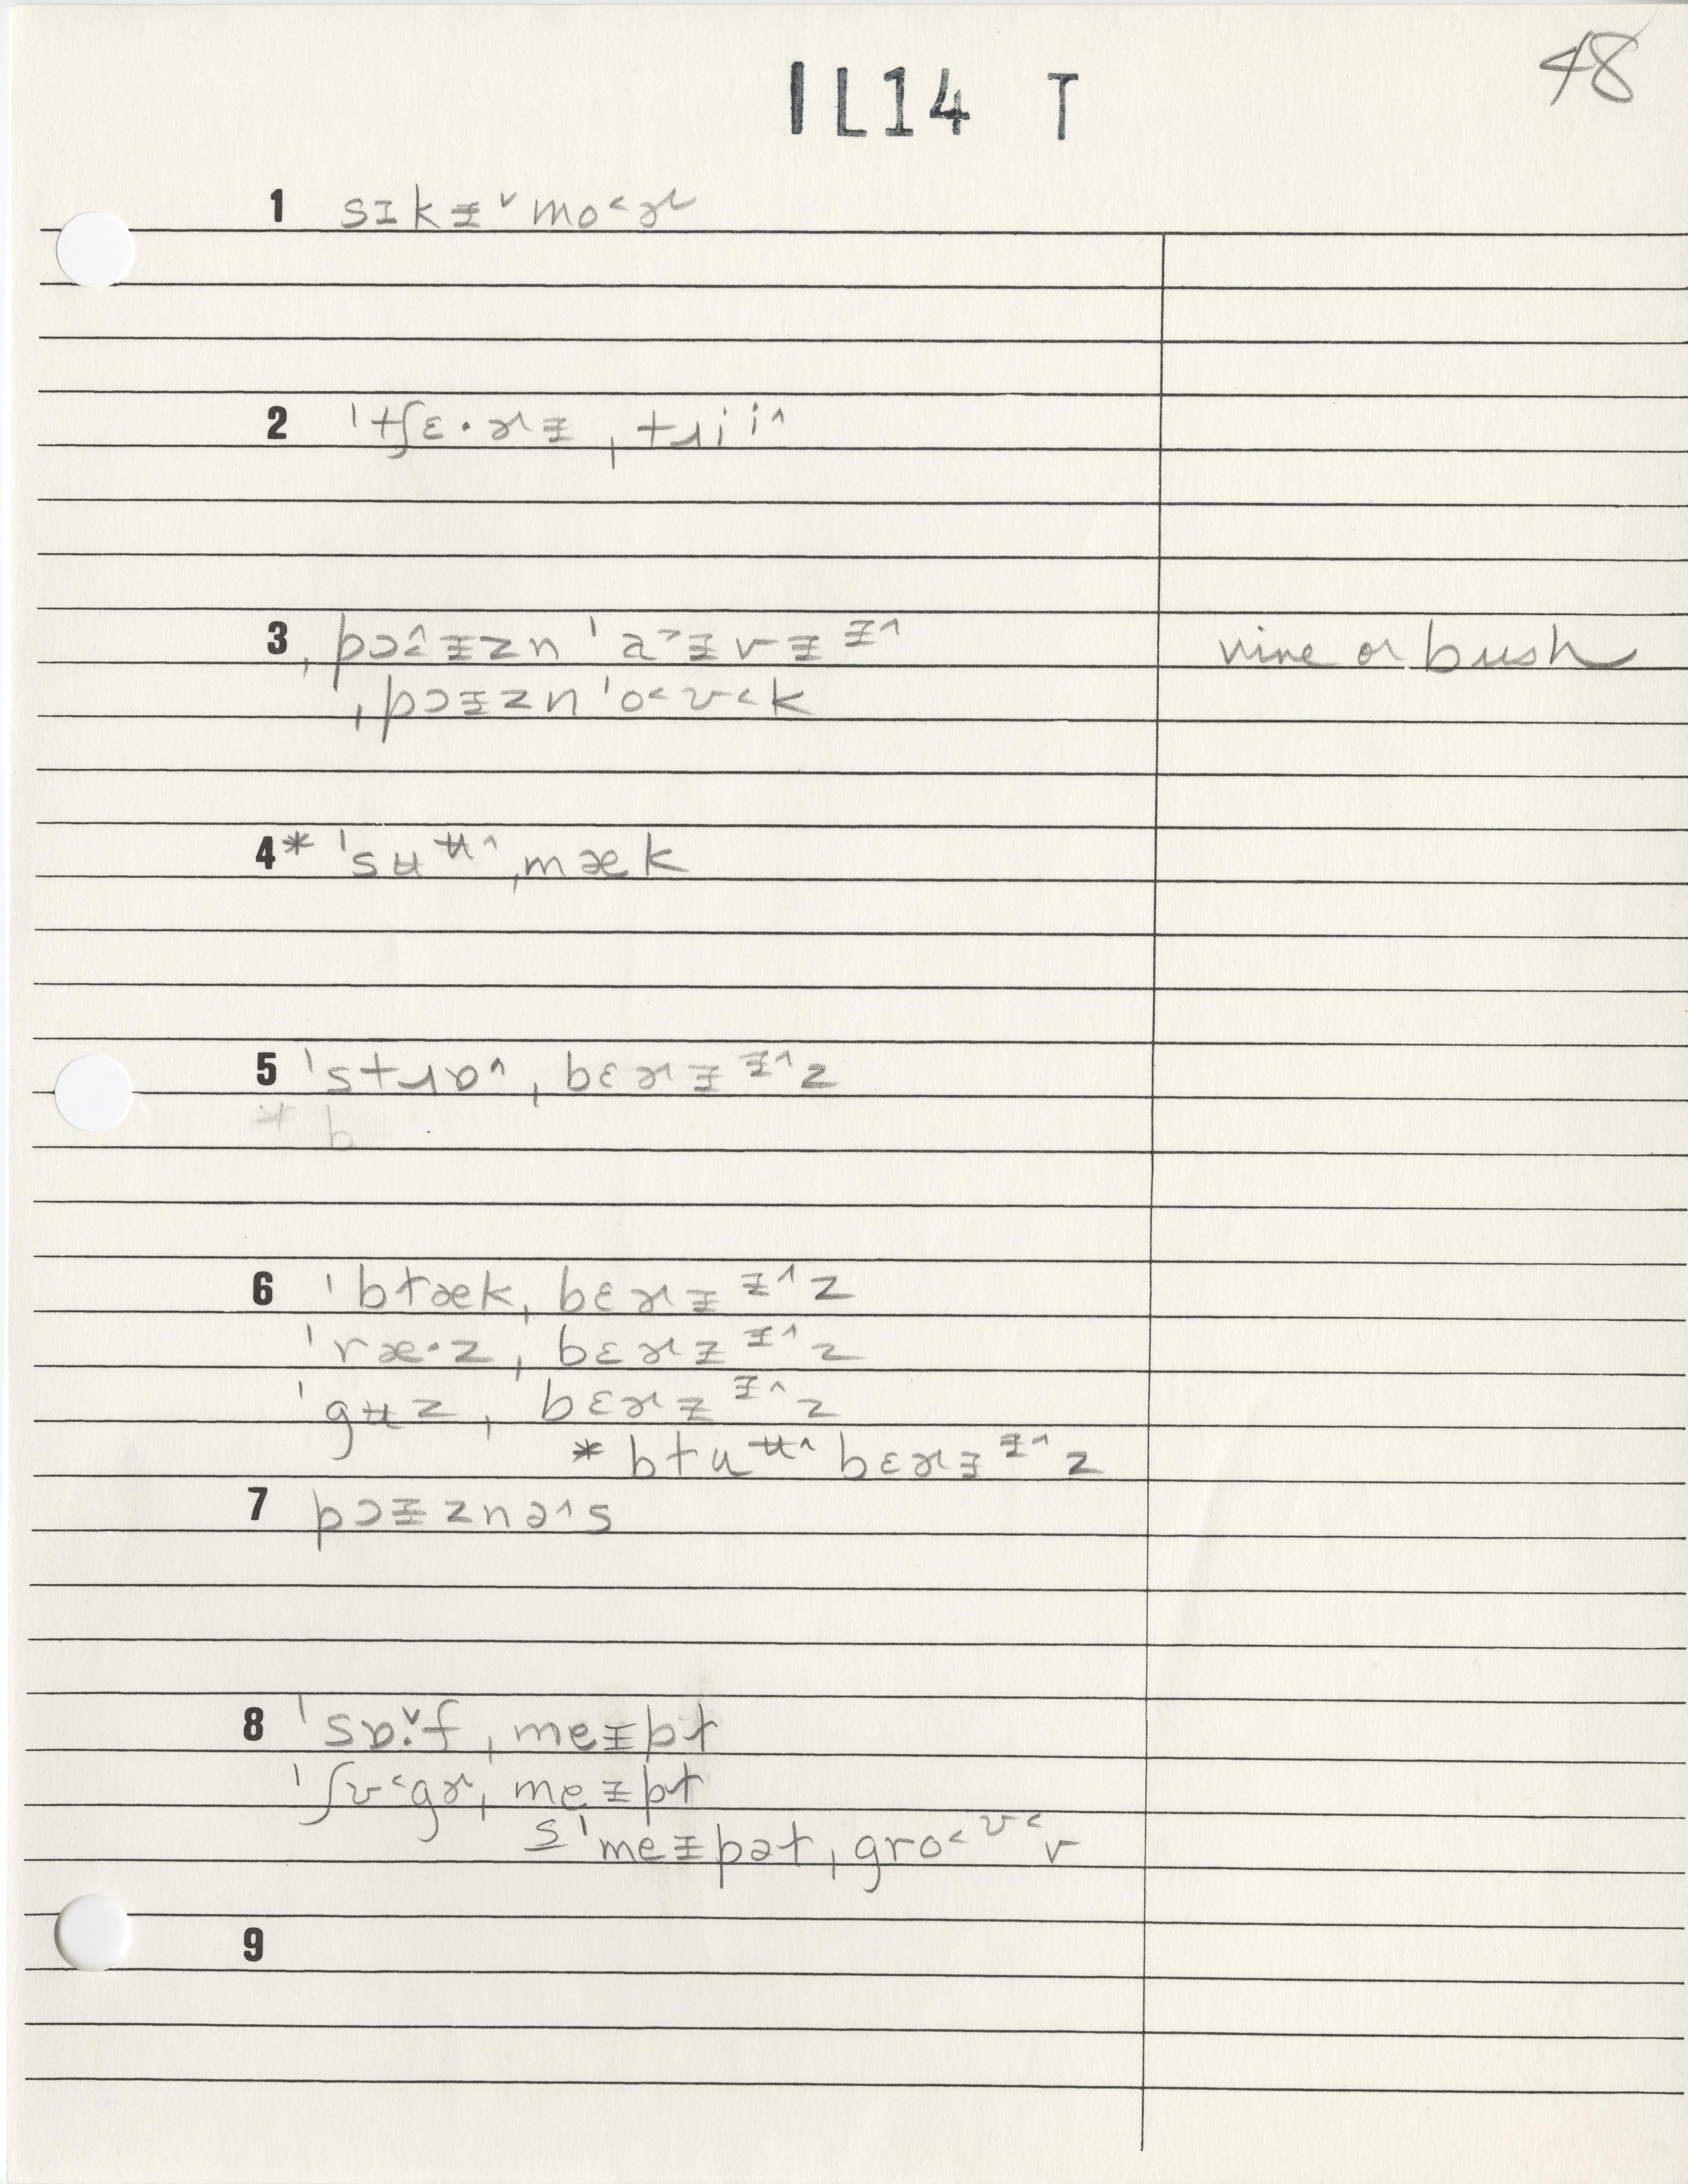 48
IL14 T
1 sɪkɨ˅mo˂ɚ
2 ˈtʃɛ·ɚɨ ˌtɹiⁱ˄
3 ˌpɔ˄ɨzn ˈa˃ɨvɨᵻ˄ vine or bush
ˌpɔɨzn ˈo˂ʊ˂k
4 * ˈsʉᵾ˄ˌmæk
5 ˈstɹɒ˄ˌbɛɚɨᵻ˄z
* b
6 ˈbɫækˌbɛɚɨᵻ˄z
ˈræ·zˌbɛɚɨᵻ˄z
ˈgʉzˌbɛɚɨᵻ˄z
* bɫuᵾ˄bɛɚɨᵻ˄z
7 pɔɨznə˄s
8 ˈsɒ·˅fˌmeɪpɫ
ˈʃʊ˂gɚˌmeɪpɫ
s ˈmeɪpəɫˌgro˂ᶷ˂v
9